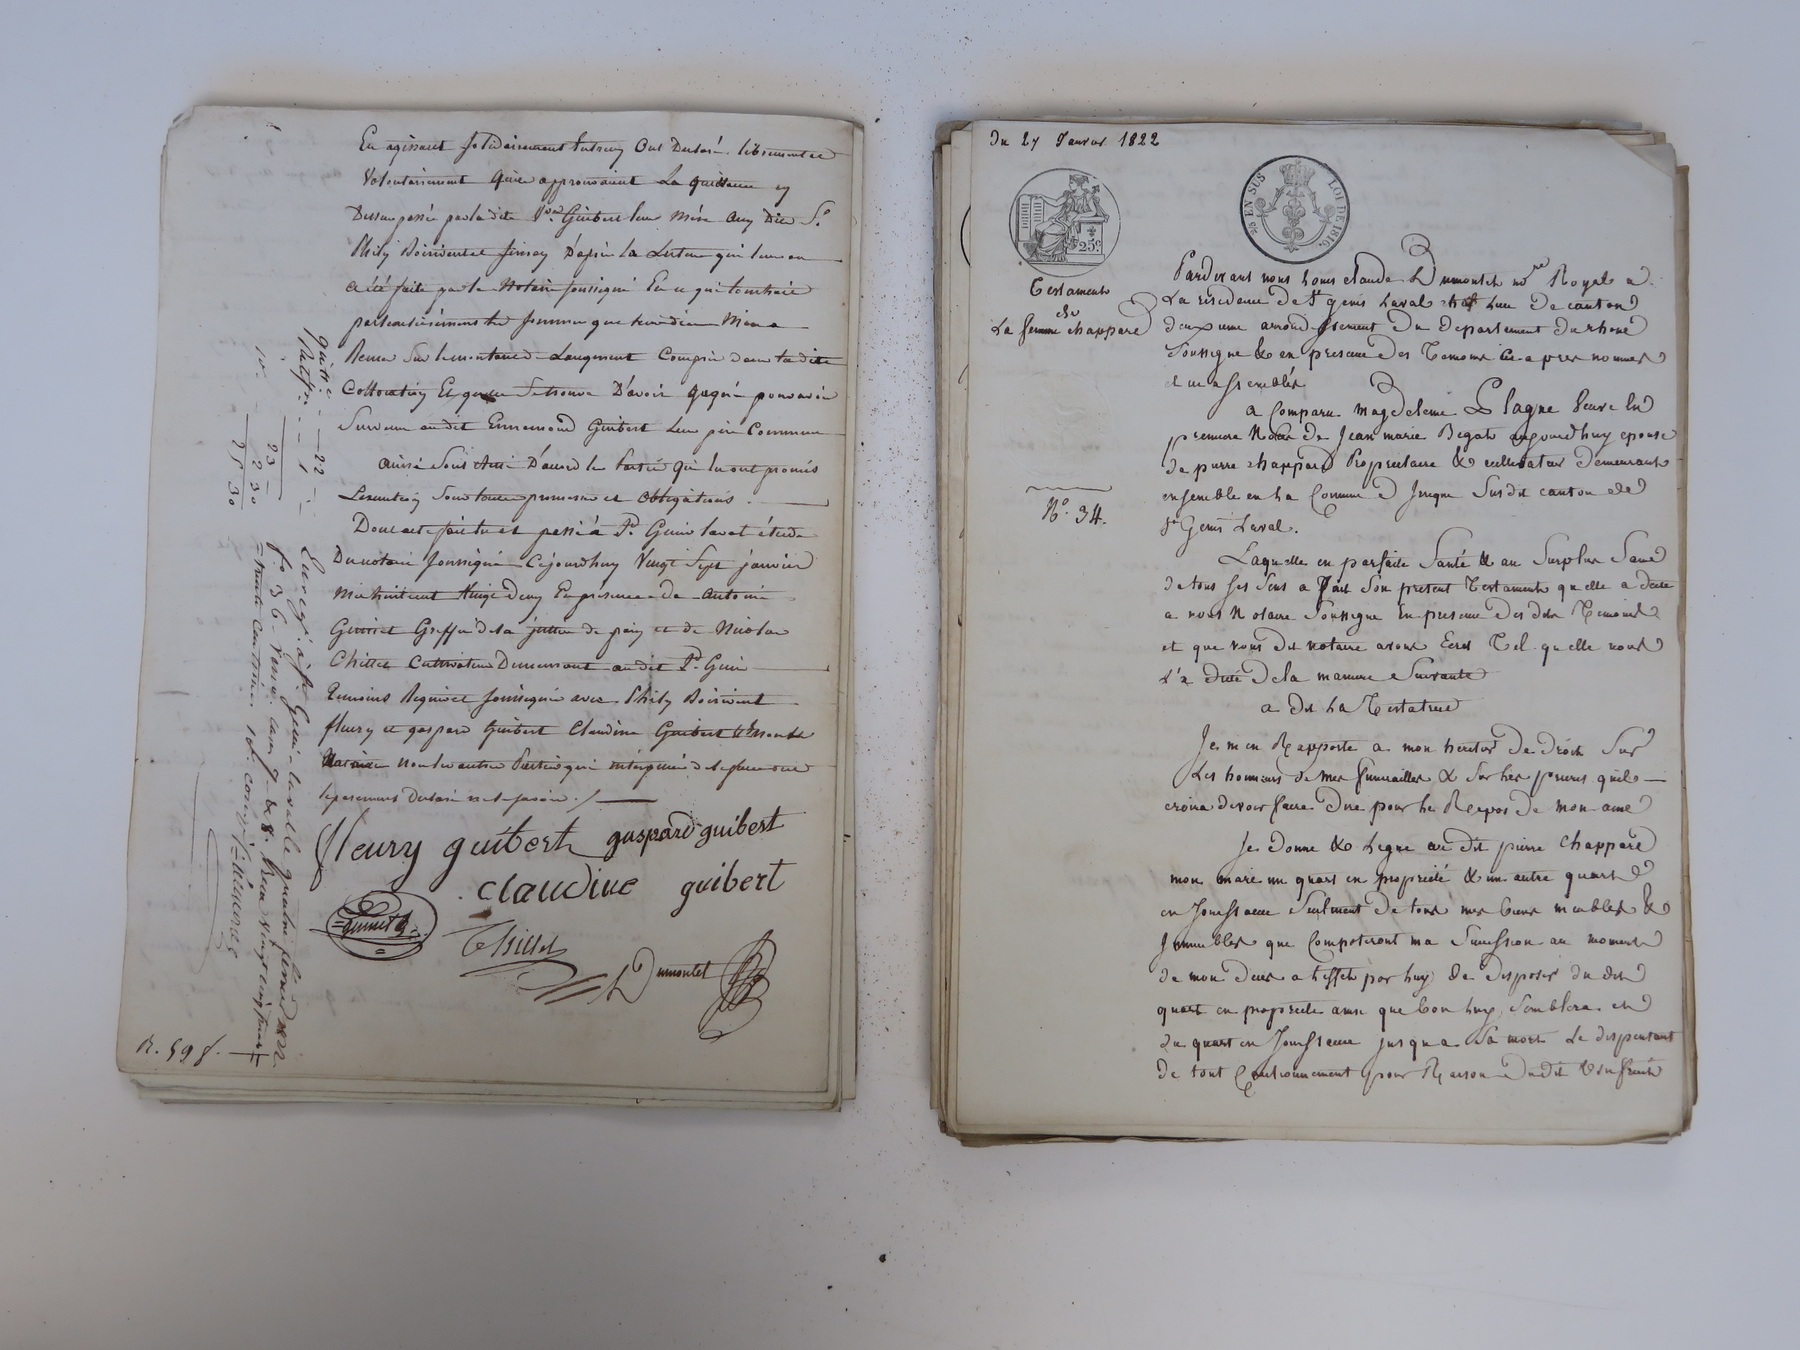 En agissant solidairement entr'eux ont déclaré librement et
Volontairement qu'ils approuvaient la quittance cy
Dessus passée par la dite Ve Guibert leur mère aux dits Sr
Phily Boiriven et
a été faite par le Notaire soussigné En ce qui
particulièrement la somme que
Reçue Sur le montant de
Collocation Et
Survenu au dit Ennemond Guibert leur père Commun
Ainsi Sont Ainsi D'accord les Parties qui l'ont promis
Sous toutes promesses et obligations.
Dont acte fait lu et passé à St. Genis Laval étude
Du notaire soussigné Cejourdhuy Vingt Sept janvier
Mil huit cent Vingt Deux En présence de Antoine
Guinet Greffier de la justice de paix et de Nicolas
Thillet Cultivateur Demeurant au dit St. Genis
Temoins Requis et soussignés avec Phily Boirivent
fleury et gaspard Guibert Claudine Guibert
non les autres Parties qui interpellées de signer ont
déclaré ne le savoir ./.
fleury guibert gaspard guibert
claudine guibert
Guinet
Thillet
L Dumontet
quitte - - 22 -
- - 1 -
23
10e - 2 30
25 30
Enregé à St Genis-laval le quatre février 1822
fo 36 verso case 7 & 8. Reçu vingt cinq francs
trente centimes 10e compris
R. 598.
Du 27 Janvier 1822
25 EN SUS
LOI DE 1816.
25c
Testament
de
La femme chappard
No. 34.
Pardevant nous Louis claude Dumontet nore Royal a
La residence de St genis Laval chef Lieu de canton
deuxieme arrondissement du departement du rhone
Soussigné & en presence des Temoins ci apres nommés
et
a Comparu Magdeleine Plagne veuve En
premiere Noces de Jean marie Begat aujourdhuy epouse
de pierre chappard Proprietaire & cultivateur demeurants
ensemble en La Commune d'Irigny Susdit canton de
St Genis Laval.
Laquelle en parfaite Santé & au Surplus Saine
de tous ses Sens a fait Son present Testament qu'elle a dicté
a nous Notaire Soussigné En presence des dits Temoins
et que nous dit notaire avons Ecrit Tel qu'elle nous
L'a dicté de la maniere Suivante
a dit La Testatrice
Je m'en Rapporte a mon heritier de droit Sur
Les honneurs de mes funerailles & Sur Les prieres qu'il
croira devoir faire dire pour Le Repos de mon ame
Je donne & Legue au dit pierre Chappard
mon mari un quart en propriété & un autre quart
en Jouissance Seulment de tous mes biens meubles &
Immeubles que Composeront ma Succession au moment
de mon deces a L'effet par Luy de disposer du dit
quart en propriété ainsi que bon Luy Semblera et
du quart en Jouissance jusqu'a Sa mort Le dispensant
de tout Cautionnement pour Raison du dit Usufruit